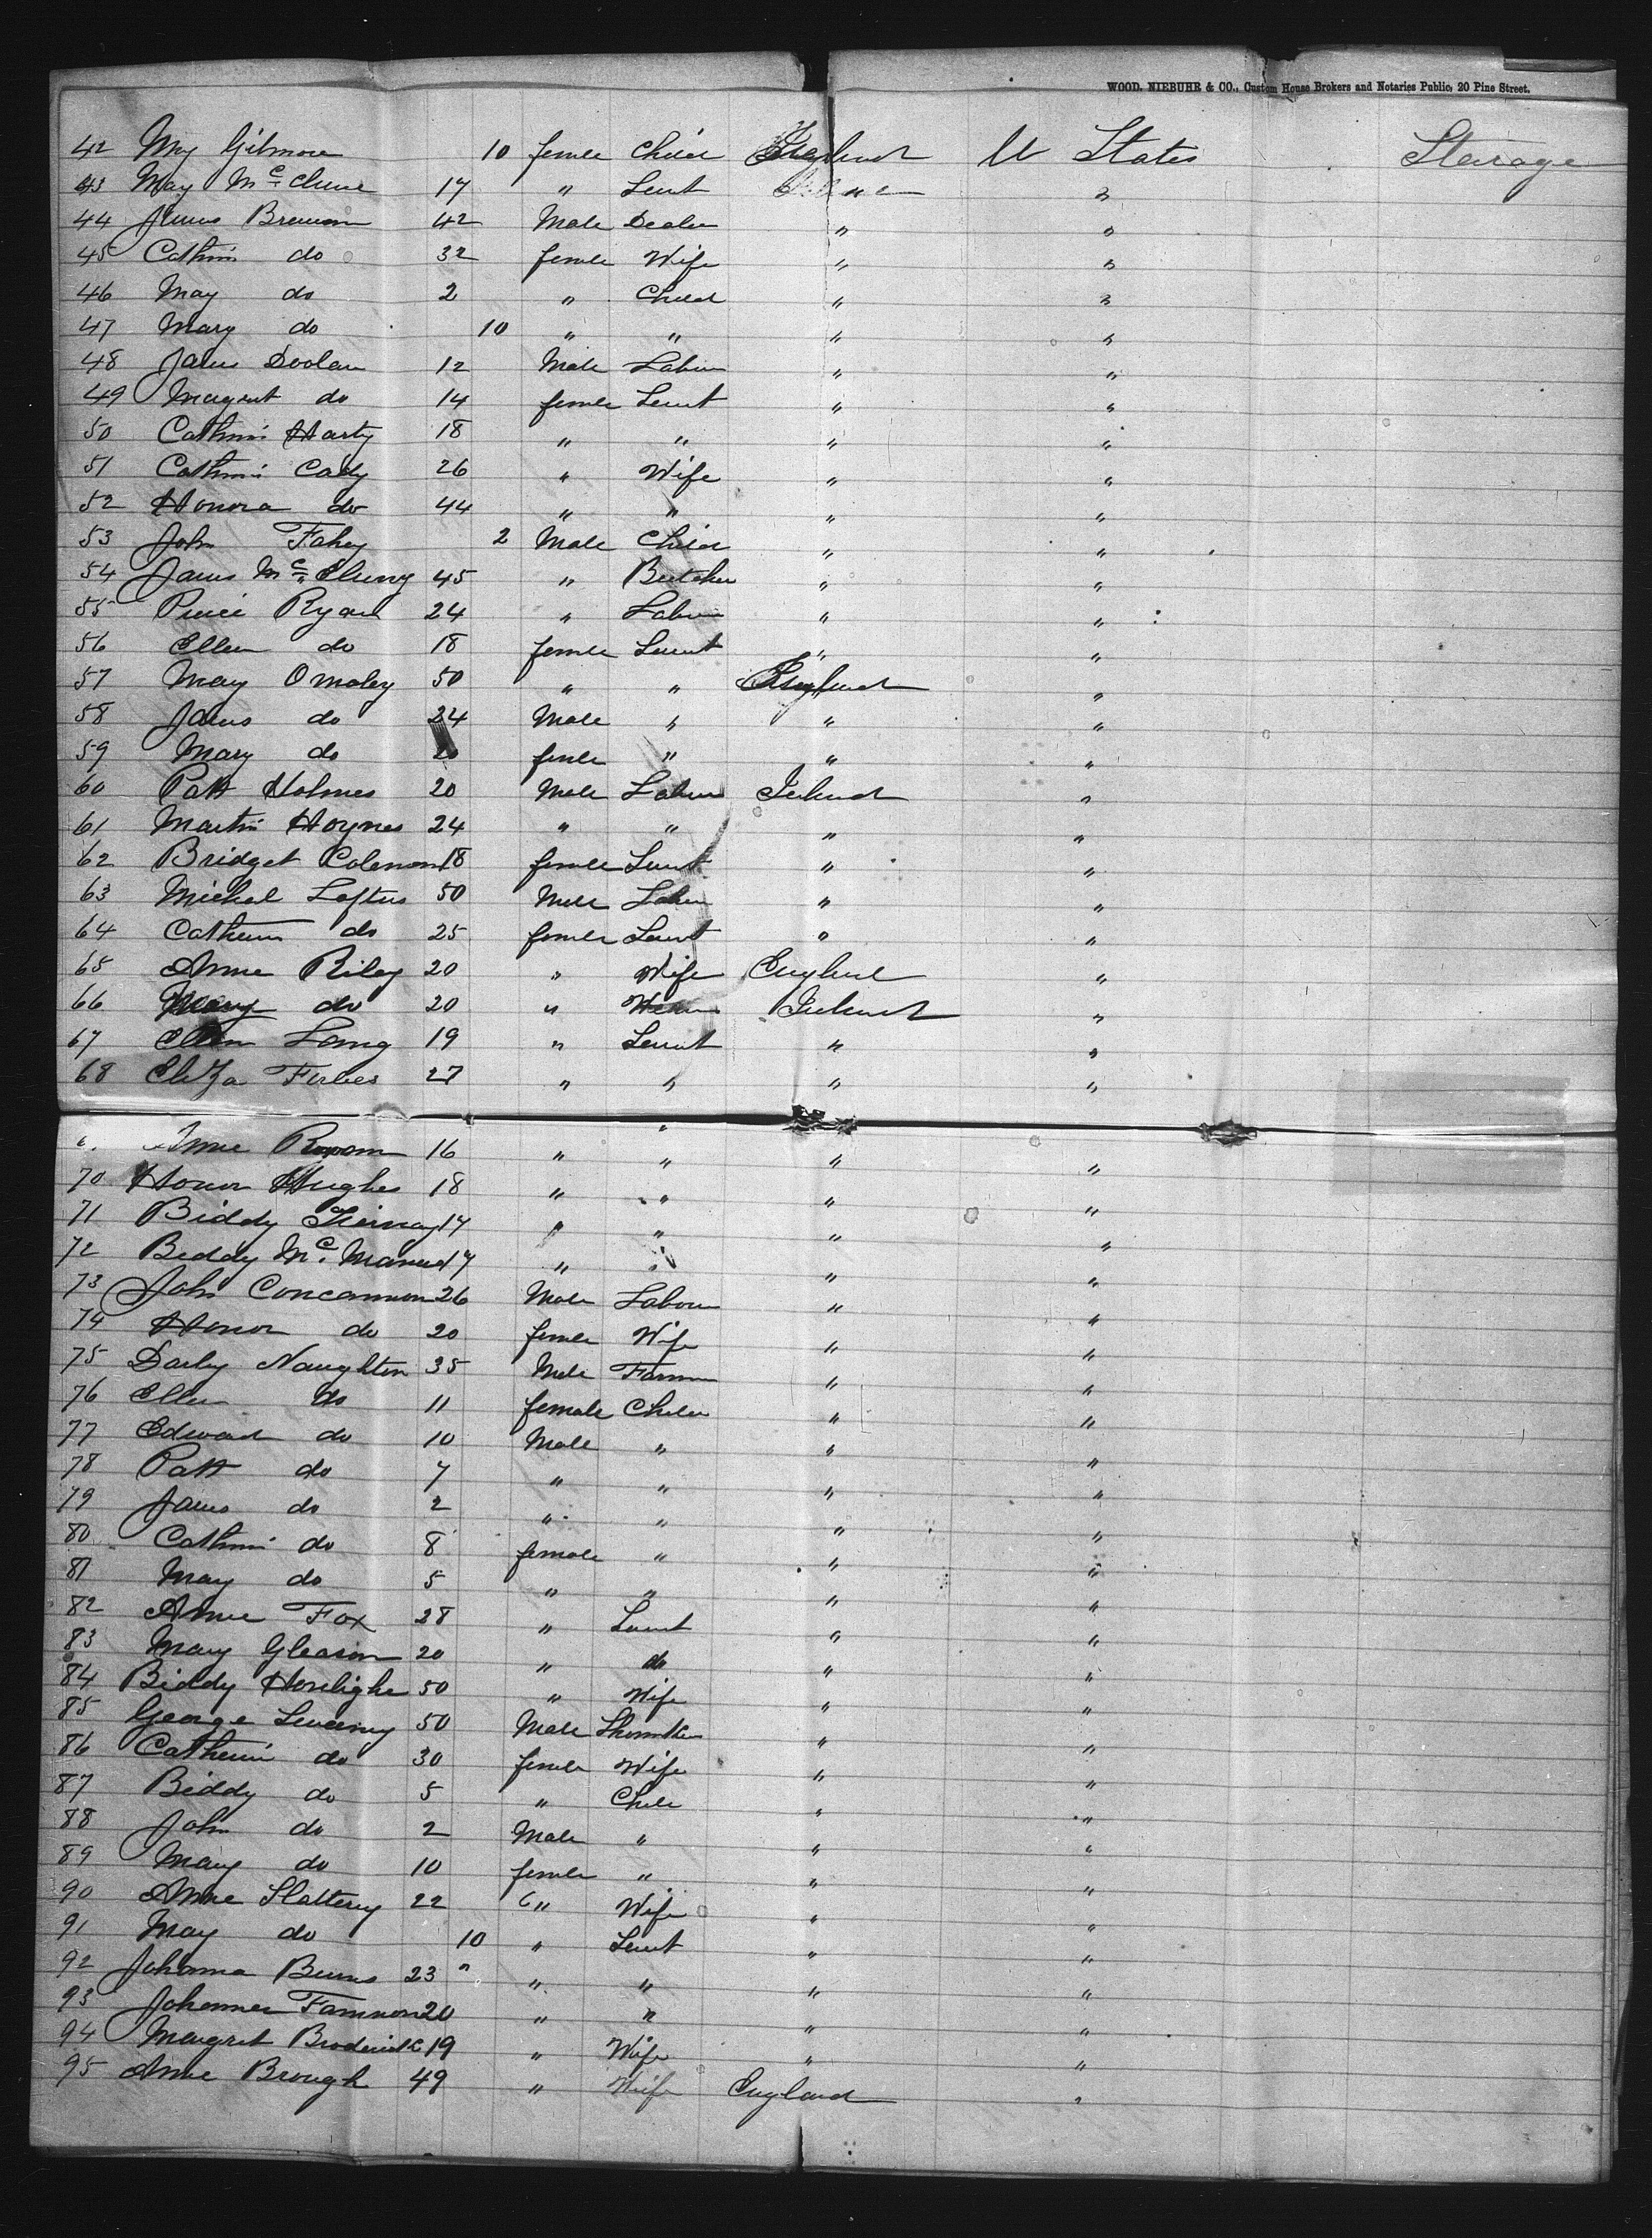 WOOD, NIEBUHR & CO., Custom House Brokers and Notaries Public, 20 Pine Street.
42 My Gilmore 10 female Child England U States Steerage
43 May Mc Clune 17 " Servt "
44 James Brennan 42 Male Dealer " "
45 Cathrin do 32 female Wife " "
46 May do 2 " Child " "
47 Mary do 10 " " " "
48 James Doolan 12 Male Labour " "
49 Margret do 14 female Servt " "
50 Cathrin Harty 18 " " " "
51 Cathrin Cady 26 " Wife " "
52 Honora do 44 " " " "
53 John Fahey 2 Male Child " "
54 James Mc Clung 45 " Butcher " "
55 Ryan 24 " Labour " "
56 Ellen do 18 female Servt " "
57 May Omaley 50 " " England "
58 James do 24 Male " " "
59 Mary do 20 female " " "
60 Patt Holmes 20 Male Labour Ireland "
61 Martin Hoynes 24 " " " "
62 Bridget Coleman 18 female Servt " "
63 Michal Loftus 50 Male Labour " "
64 Cathrin do 25 female Servt " "
65 Anne Riley 20 " Wife England "
66 Mary do 20 " Ireland "
67 Ellen Lang 19 " Servt " "
68 Eliza Forbes 27 " " " "
Anne 16 " " " "
70 Honor Hughes 18 " " " "
71 Biddy 17 " " " "
72 Biddy Mc Manus 17 " " " "
73 John Concannon 26 Male Labour " "
74 Honor do 20 female Wife " "
75 Darby Naughton 35 Male Farmer " "
76 Ellen do 11 female Child " "
77 Edward do 10 Male " " "
78 Patt do 7 " " " "
79 James do 2 " " " "
80 Cathrin do 8 female " " "
81 May do 5 " " " "
82 Anne Fox 28 " Servt " "
83 Mary Gleason 20 " do " "
84 Biddy 50 " Wife " "
85 George 50 Male " "
86 Catherin do 30 female Wife " "
87 Biddy do 5 " Child " "
88 John do 2 Male " " "
89 Mary do 10 female " " "
90 Anne Slattery 22 " Wife " "
91 May do 10 " Servt " "
92 Johanna Burns 23 " " " " "
93 20 " " " "
94 Margret Broderick 19 " Wife " "
95 Anne Brough 49 " Wife England "